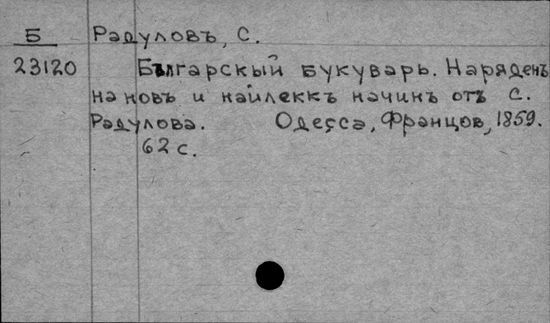 Б Радуловъ, С.
23120 Бългaрскый букуварь. Наряденъ
на новъ и найлеккъ начинъ отъ С.
Радулова. Одесса, Францов, 1859.
62 с.